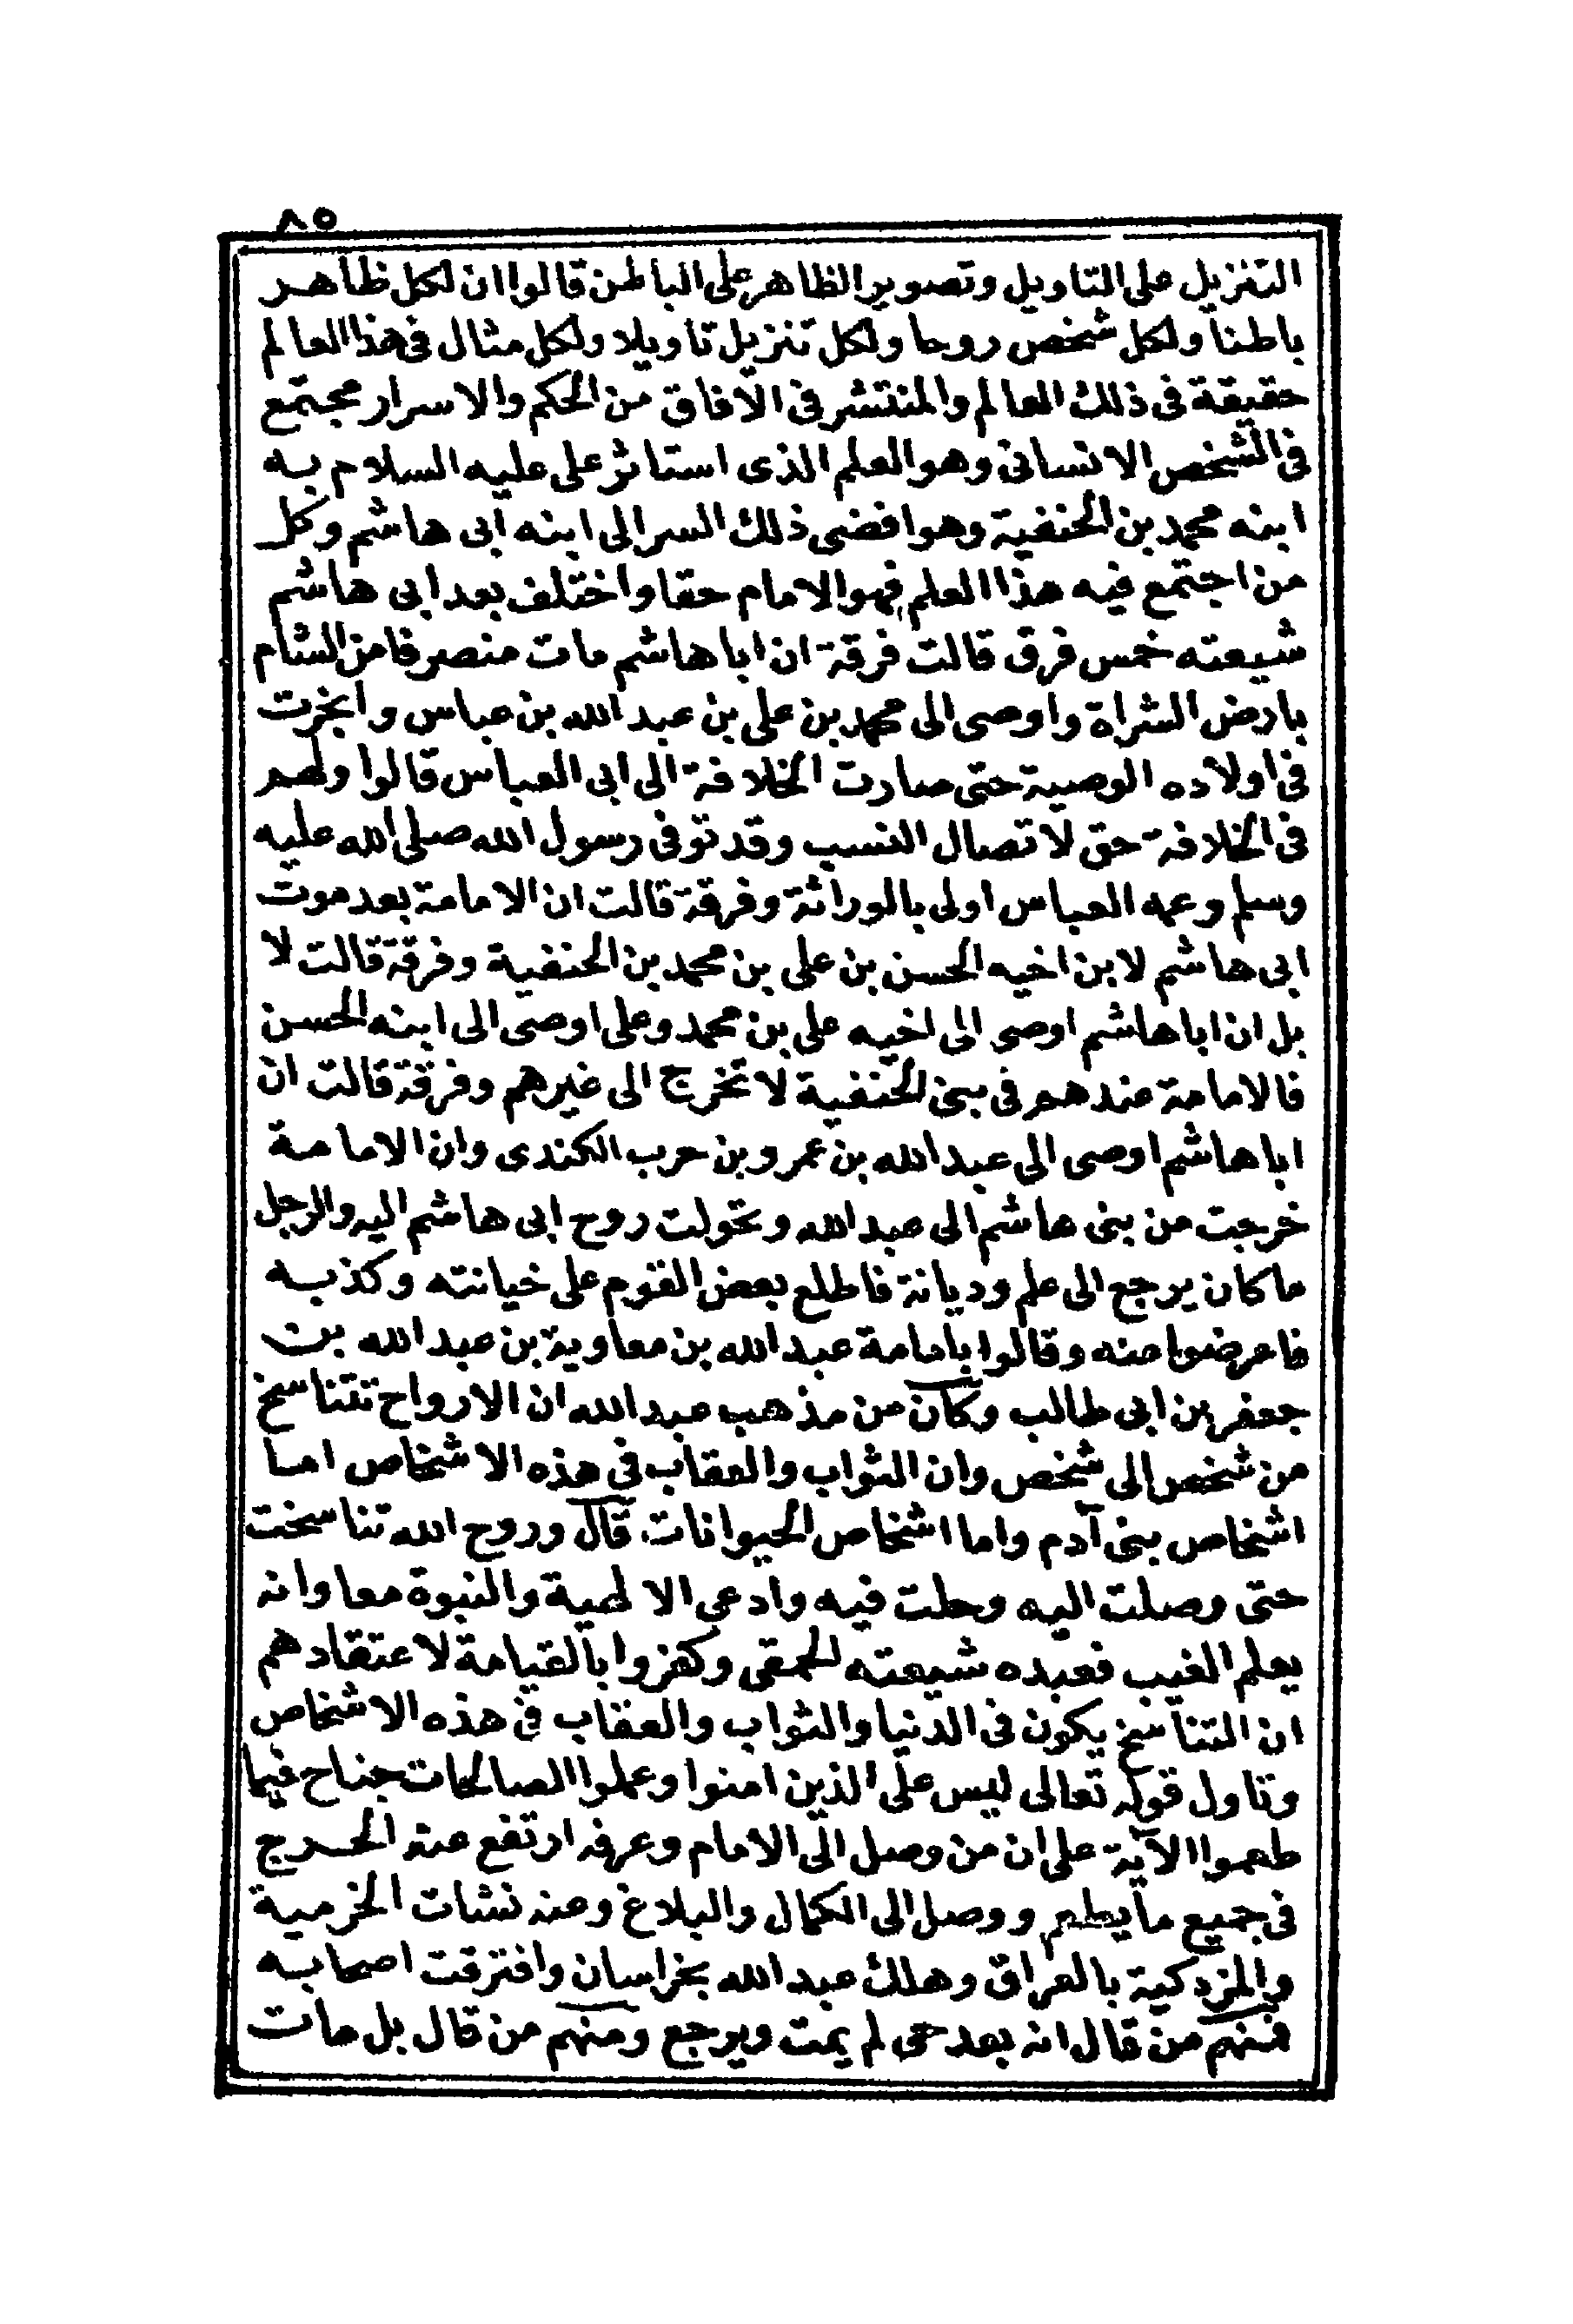 ٨٥
التنزيل على التاويل وتصوير الظاهر على الباطن قالوا ان لكل ظاهر
باطنا ولكل شخص روحا ولكل تنزيل تاويلا ولكل مثال فى هذا العالم
حقيقة فى ذلك العالم والمنتشر فى الآفاق من الحكم والاسرار مجتمع
فى الشخص الانسانى وهو العلم الذى استاثر على عليه السلام به
ابنه محمد بن الحنفية وهو افضى ذلك السر الى ابنه ابى هاشم وكل
من اجتمع فيه هذا العلم فهو الامام حقا واختلف بعد ابى هاشم
شيعته خمس فرق قالت فرقة ان ابا هاشم مات منصرفا من الشام
بارض الشراة واوصى الى محمد بن على بن عبد الله بن عباس وانجرت
فى اولاده الوصية حتى صارت الخلافة الى ابى العباس قالوا ولهم
فى الخلافة حق لاتصال النسب وقد توفى رسول الله صلى الله عليه
وسلم وعمه العباس اولى بالوراثة وفرقة قالت ان الامامة بعد موت
ابى هاشم لابن اخيه الحسن بن على بن محمد بن الحنفية وفرقة قالت لا
بل ان ابا هاشم اوصى الى اخيه على بن محمد وعلى اوصى الى ابنه الحسن
فالامامة عندهم فى بنى الحنفية لا تخرج الى غيرهم وفرقة قالت ان
ابا هاشم اوصى الى عبد الله بن عمرو بن حرب الكندى وان الامامة
خرجت من بنى هاشم الى عبد الله وتحولت روح ابى هاشم اليه والرجل
ما كان يرجع الى علم وديانة فاطلع بعض القوم على خيانته وكذبه
فاعرضوا عنه وقالوا بامامة عبد الله بن معاوية بن عبد الله بن
جعفر بن ابى طالب وكان من مذهب عبد الله ان الارواح تتناسخ
من شخص الى شخص وان الثواب والعقاب فى هذه الاشخاص اما
اشخاص بنى آدم واما اشخاص الحيوانات قال وروح الله تناسخت
حتى وصلت اليه وحلت فيه وادعى الالهية والنبوة معا وانه
يعلم الغيب فعبده شيعته الحمقى وكفروا بالقيامة لاعتقادهم
ان التناسخ يكون فى الدنيا والثواب والعقاب فى هذه الاشخاص
وتاول قوله تعالى ليس على الذين امنوا وعملوا الصالحات جناح فيما
طعموا الآية على ان من وصل الى الامام وعرفه ارتفع عنه الحرج
فى جميع ما يطعم ووصل الى الكمال والبلاغ وعنه نشات الخرمية
والمزدكية بالعراق وهلك عبد الله بخراسان وافترقت اصحابه
فمنهم من قال انه بعد حى لم يمت ويرجع ومنهم من قال بل مات